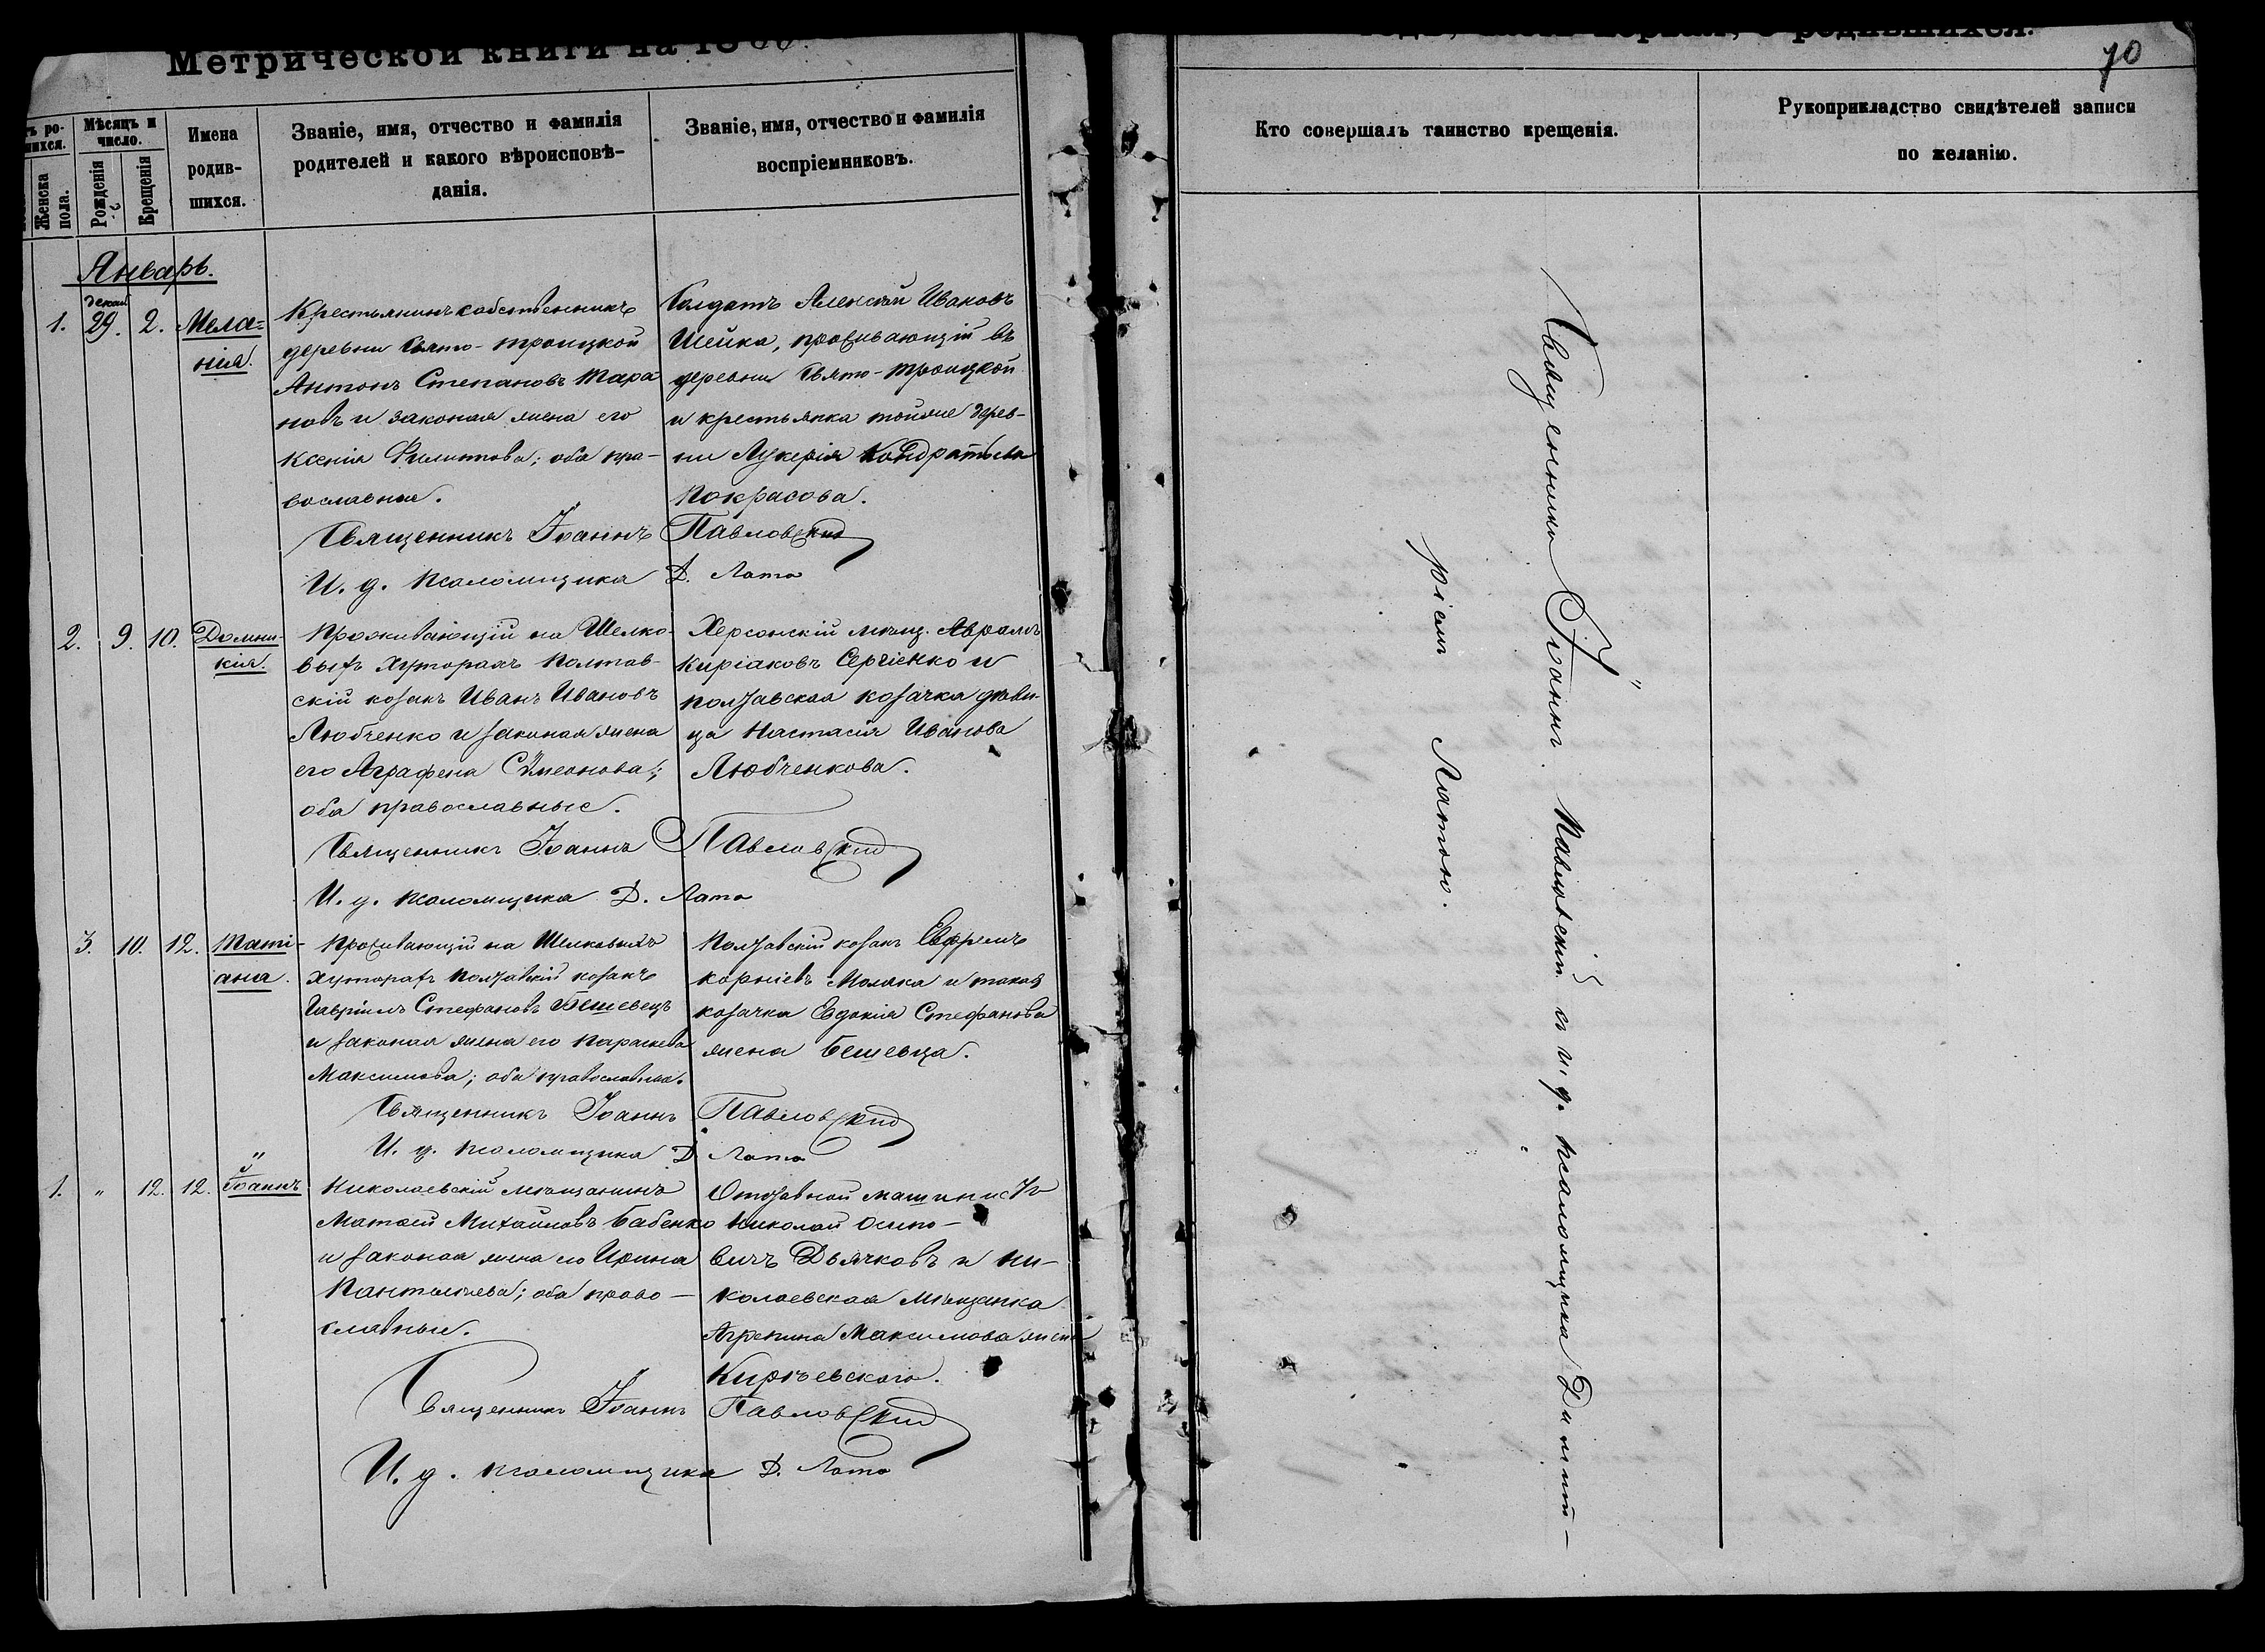 Метрической книги на 18
70
Мѣсяцъ и число.
Женска пола.
Рожденія
Крещенія
Имена родив-шихся.
Званіе, имя, отчество и фамилія
родителей и какого вѣроисповѣ-
данія.
Званіе, имя, отчество и фамилія
воспріемниковъ.
Кто совершалъ таинство крещенія.
Рукоприкладство свидѣтелей записи
по желанію.
Январь.
1. 29. 2. Мела-
нія.
Крестьянинъ собственникъ
деревни Свято-Троицкой
Антонъ Степановъ Тара
новъ и законая жена его
Ксенія Филиппова; оба пра-
вославные.
Солдатъ Алексѣй Ивановъ
Шейка, проживающій въ
деревни Свято-Троицкой
и крестьянка тойже дерев-
ни Лукерія Кондратьева
Покрасова.
Священникъ Іоаннъ Павловскій
И. д. псаломщика Д. Лато
2. 9. 10. Домни-
кія.
Проживающій на Шелко-
выхъ хуторахъ Полтав-
скій козакъ Иванъ Ивановъ
Любченко и законая жена
его Аграфена Симеонова;
оба православные.
Херсонскій мѣщ. Аврамъ
Киріаковъ Сергіенко и
полтавская козачка дѣви-
ца Настасія Иванова
Любченкова.
Священникъ Іоаннъ Павловскій
И. д. псаломщика Д. Лато
3. 10. 12. Таті-
ана.
Проживающій на Шелковыхъ
хуторахъ Полтавскій козакъ
Гавріилъ Стефановъ Бешевецъ
и законая жена его Параскева
Максимова; оба православные.
Полтавскій козакъ Ефремъ
Корніевъ Моляка и такая
козачка Евдокія Стефанова
жена Бешевца.
Священникъ Іоаннъ Павловскій
И. д. псаломщика Д. Лато
1. " 12. 12. Іоаннъ
Николаевскій мѣщанинъ
Матѳей Михайловъ Бабенко
и законая жена его Ирина
Пантелѣева; оба право-
славные.
Отставной машинистъ
Николай Осипо-
вичъ Дьячковъ и ни-
колаевская мѣщанка
Агрепина Максимова жена
Кирѣевскаго.
Священникъ Іоаннъ Павловскій
И. д. псаломщика Д. Лато
Священникъ Іоаннъ Павловскій съ и. д. псаломщика Димит-
ріемъ Латою.